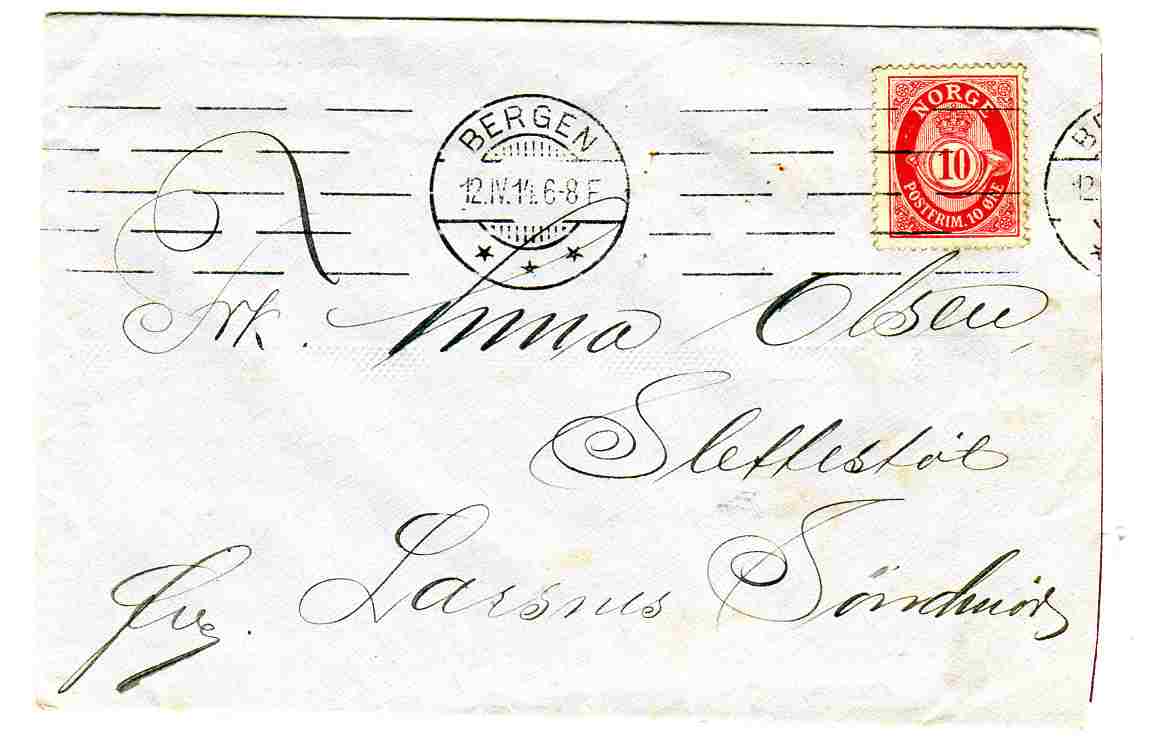 BERGEN
12.IV.14.6-8 F
NORGE
10
POSTFRIM. 10 ØRE
Frk. Anna Olsen,
Slettestøl
Larsnes Söndmör